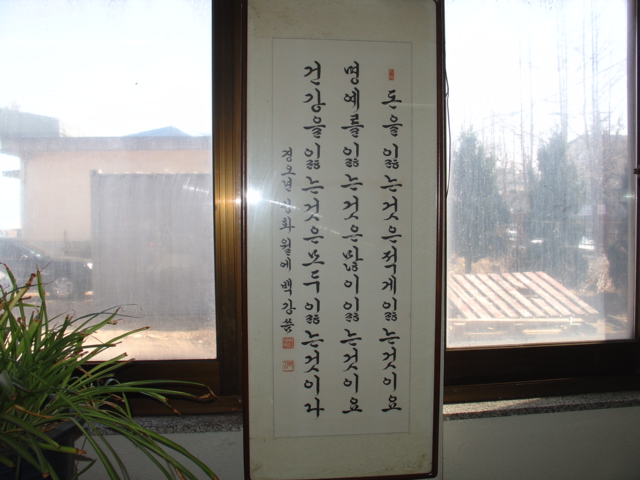 돈을 잃는것은적게잃는것이요
명예를 잃는것은많이잃는것이요
건강을잃는것은모두잃는것이다
경오년 월에 백강 씀